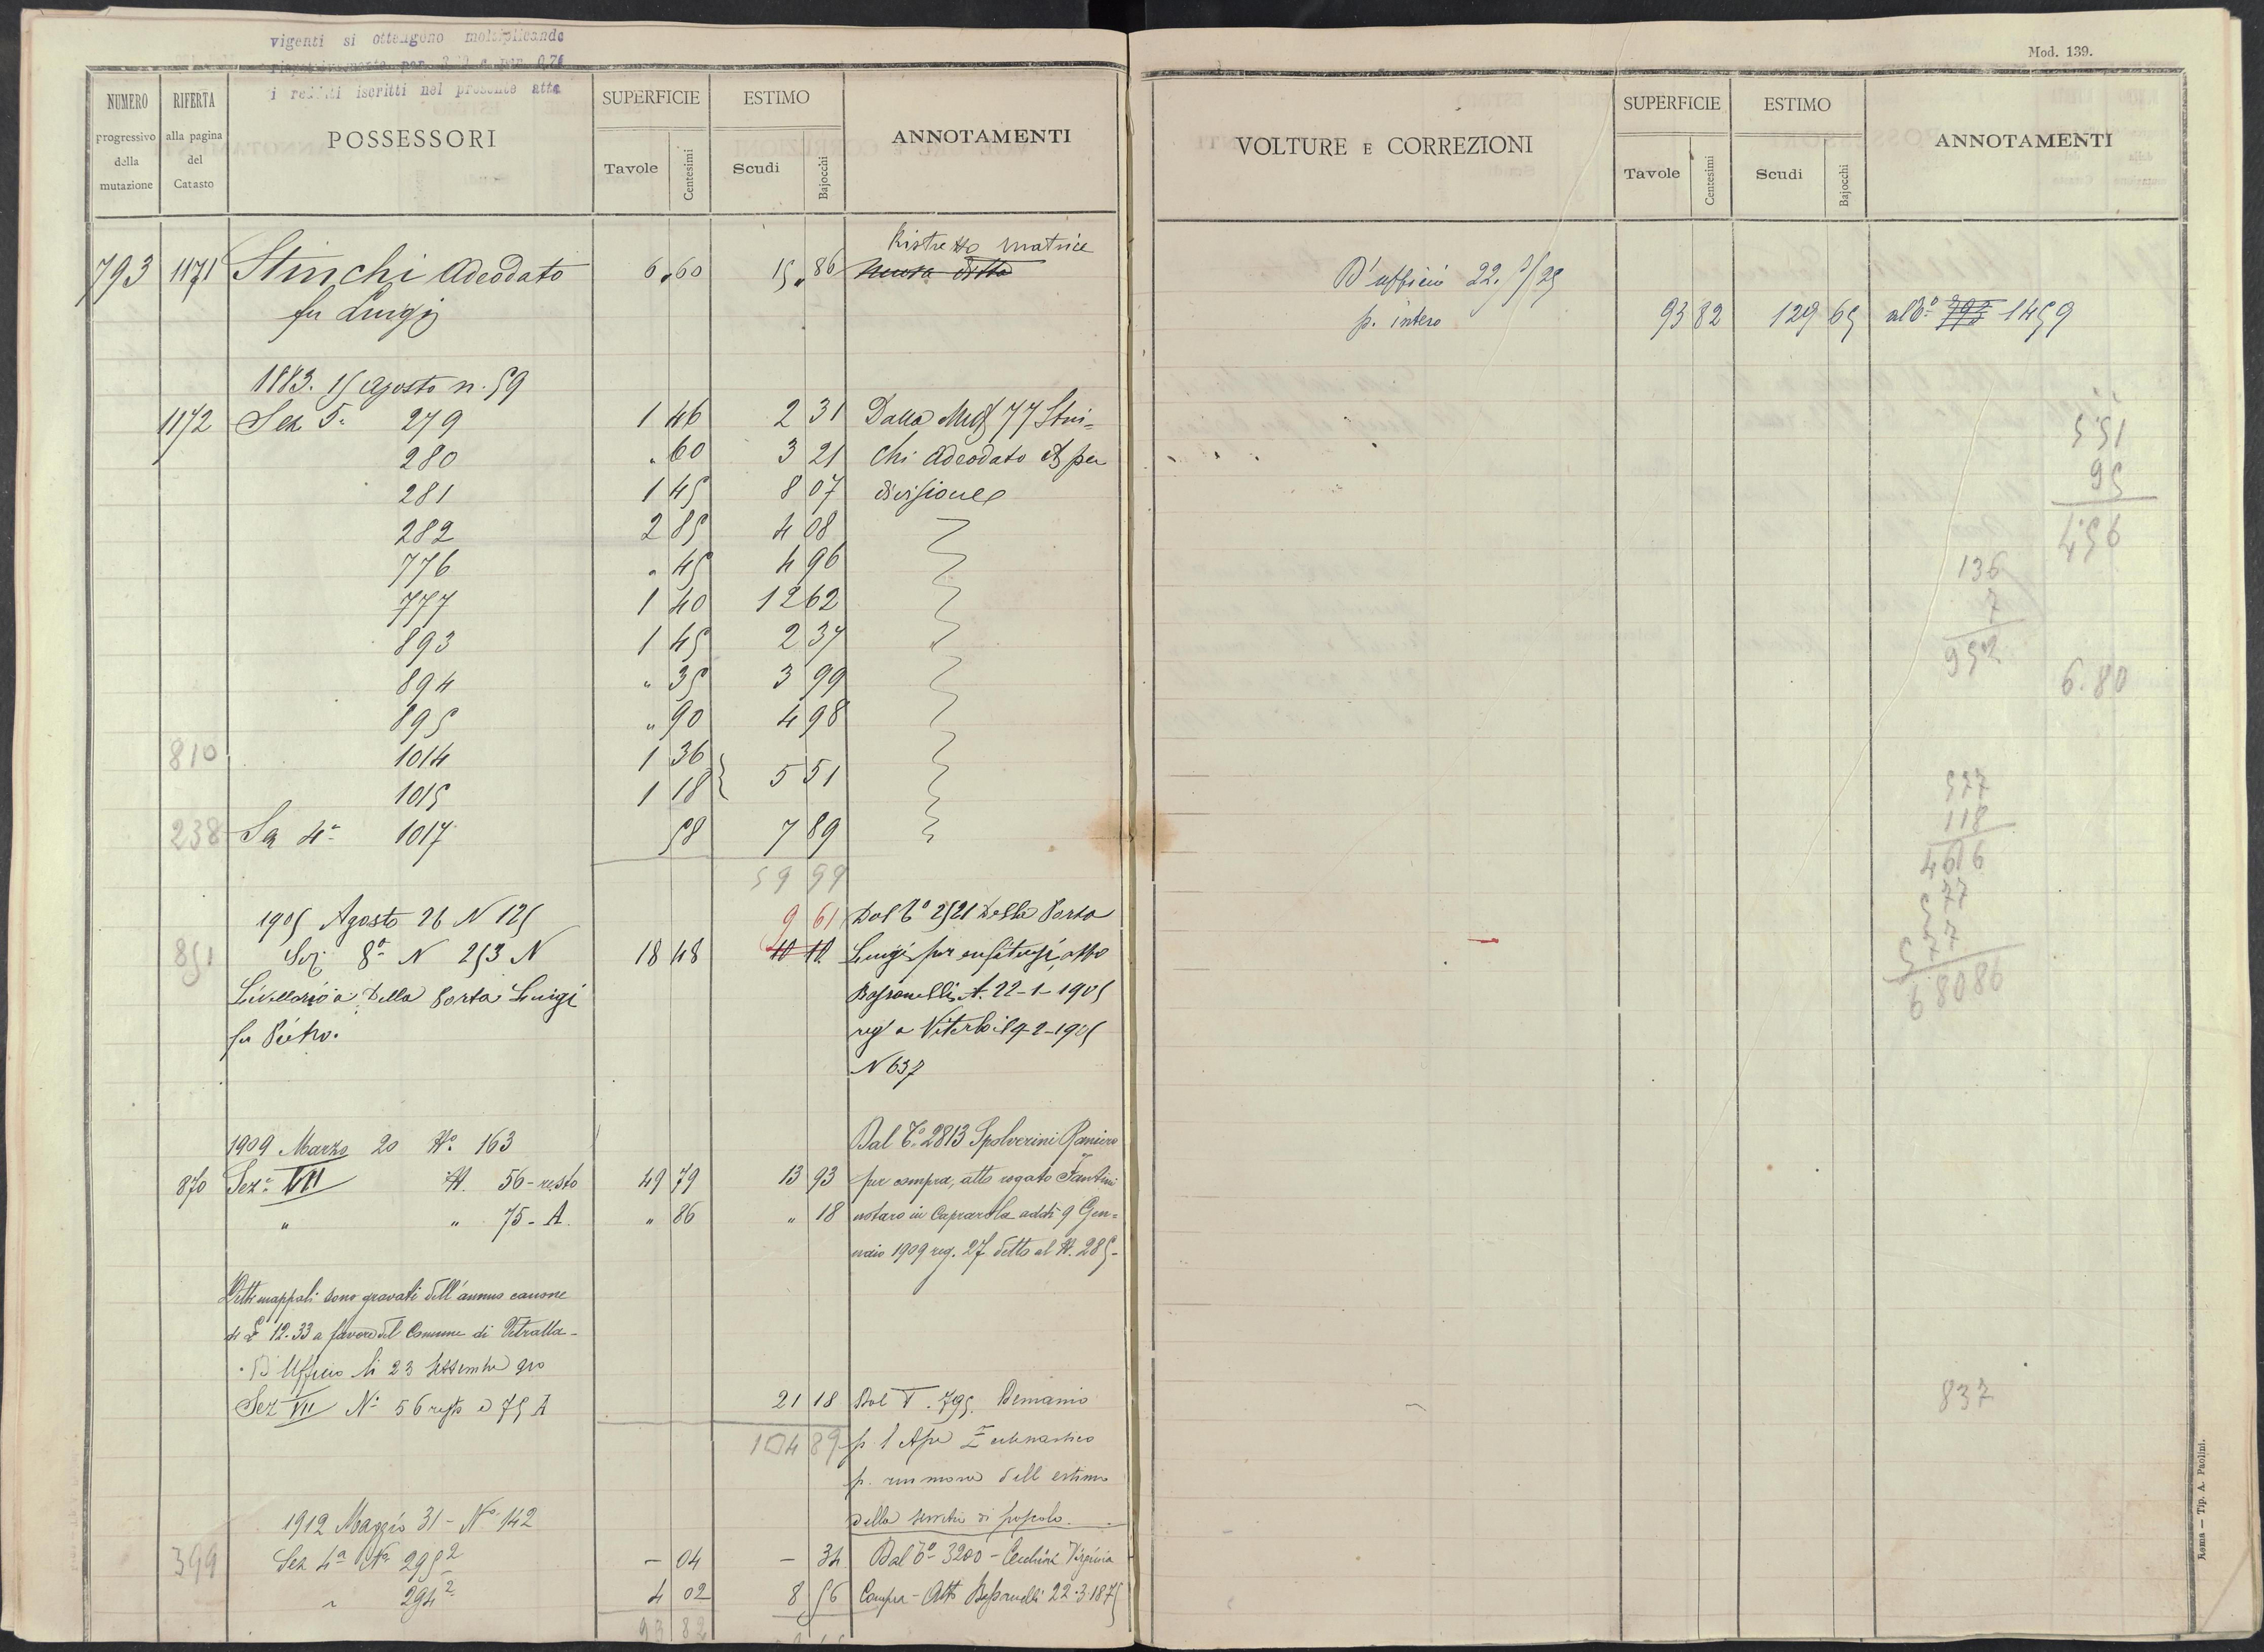 vigenti si ottengono moltiplicando
per 0,76
i redditi iscritti nel presente atto
NUMERO progressivo della mutazione
RIFERTA alla pagina del Catasto
POSSESSORI
SUPERFICIE Tavole Centesimi
ESTIMO Scudi Bajocchi
ANNOTAMENTI
Ristretto matrice
793 1171 Stinchi Adeodato 6,60 15,86
fu Luigi
1883. 15 Agosto n. 59
1172 Sez 5ª 279 1 46 2 31 Dalla 77 Stin=
280 " 60 3 21 chi Adeodato per
281 1 45 8 07 divisione
282 2 85 4 08
776 " 45 4 96
777 1 40 12 62
893 1 45 2 37
894 " 35 3 99
895 " 90 4 98
810 1014 1 36
1015 1 18 } 5 51
238 Sez 4ª 1017 58 7 89
59 99
1905 Agosto 26 N 125 9 61 Dal Tº 2521 Della Porta
851 Sez. 8ª N 253 N 18 48 10 10 Luigi per enfiteusi, atto
Livellario a Della Porta Luigi A. 22-1-1905
fu Pietro. reg a Viterbo il 9-2-1905
N 637
1909 Marzo 20 Nº. 163 Dal Tº 2813 Spolverini Raniero
870 Sezª VII N. 56-resto 49 79 13 93 per compra, atto rogato Fantini
" " 75-A. " 86 " 18 notaro in Caprarola addì 9 Gen=
naio 1909 reg. 27 detto al N. 285-
Detti mappali sono gravati dell'annuo canone
di £ 12.33 a favore del Comune di Vetralla-
D'Ufficio li 23 Settembre 910
Sez VII Nº 56 resto e 75 A 21 18 Dal T. 795. Demanio
104 89 p. l'Asse Ecclesiastico
dell'estimo
della servitù di pascolo.
1912 Maggio 31 - Nº 142
399 Sez 4ª Nº 295² - 04 - 34 Dal Tº 3200 - Cecchini Virginia
" 294² 4 02 8 56 Compra - Atto 22.3.1875
93 82
Mod. 139.
VOLTURE E CORREZIONI
SUPERFICIE Tavole Centesimi
ESTIMO Scudi Bajocchi
ANNOTAMENTI
D'ufficio 22. /25
p. intero 93 82 129 65 al Tº 793 1459
551
95
456
136
7
952
6.80
577
118
4616
577
577
68086
837
Roma — Tip. A. Paolini.